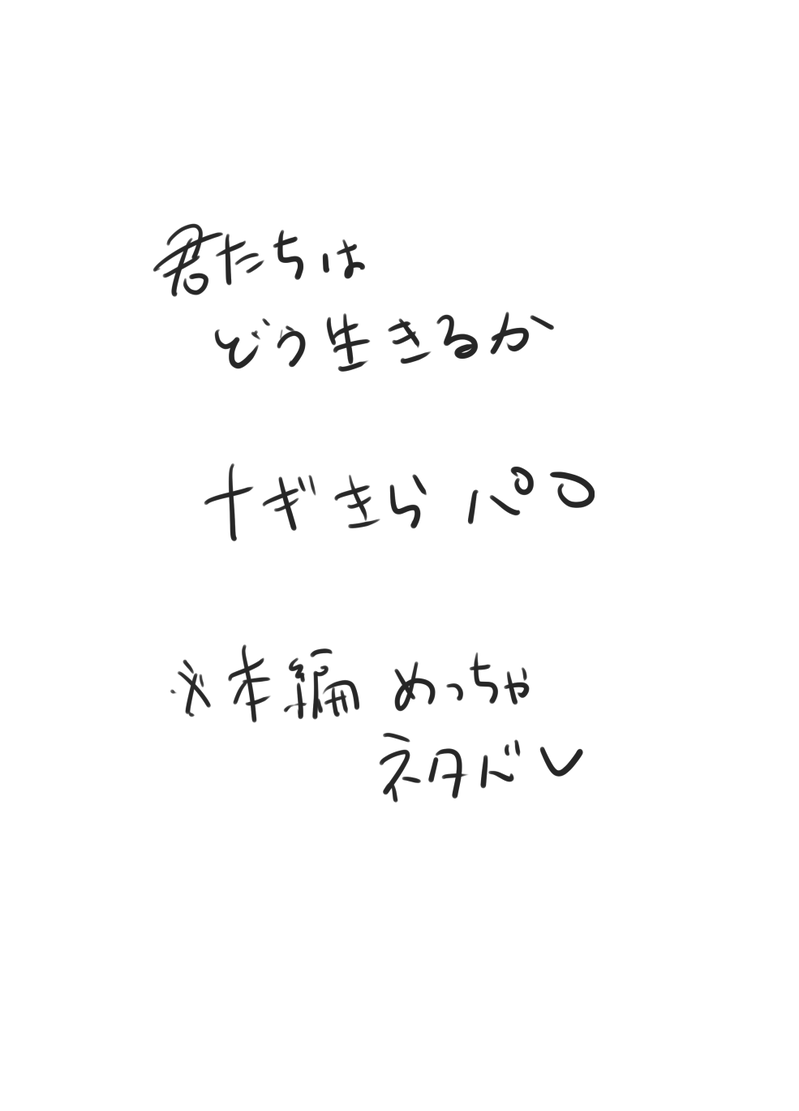 君たちは
どう生きるか
ナギきらパロ
※本編めっちゃ
ネタバレ